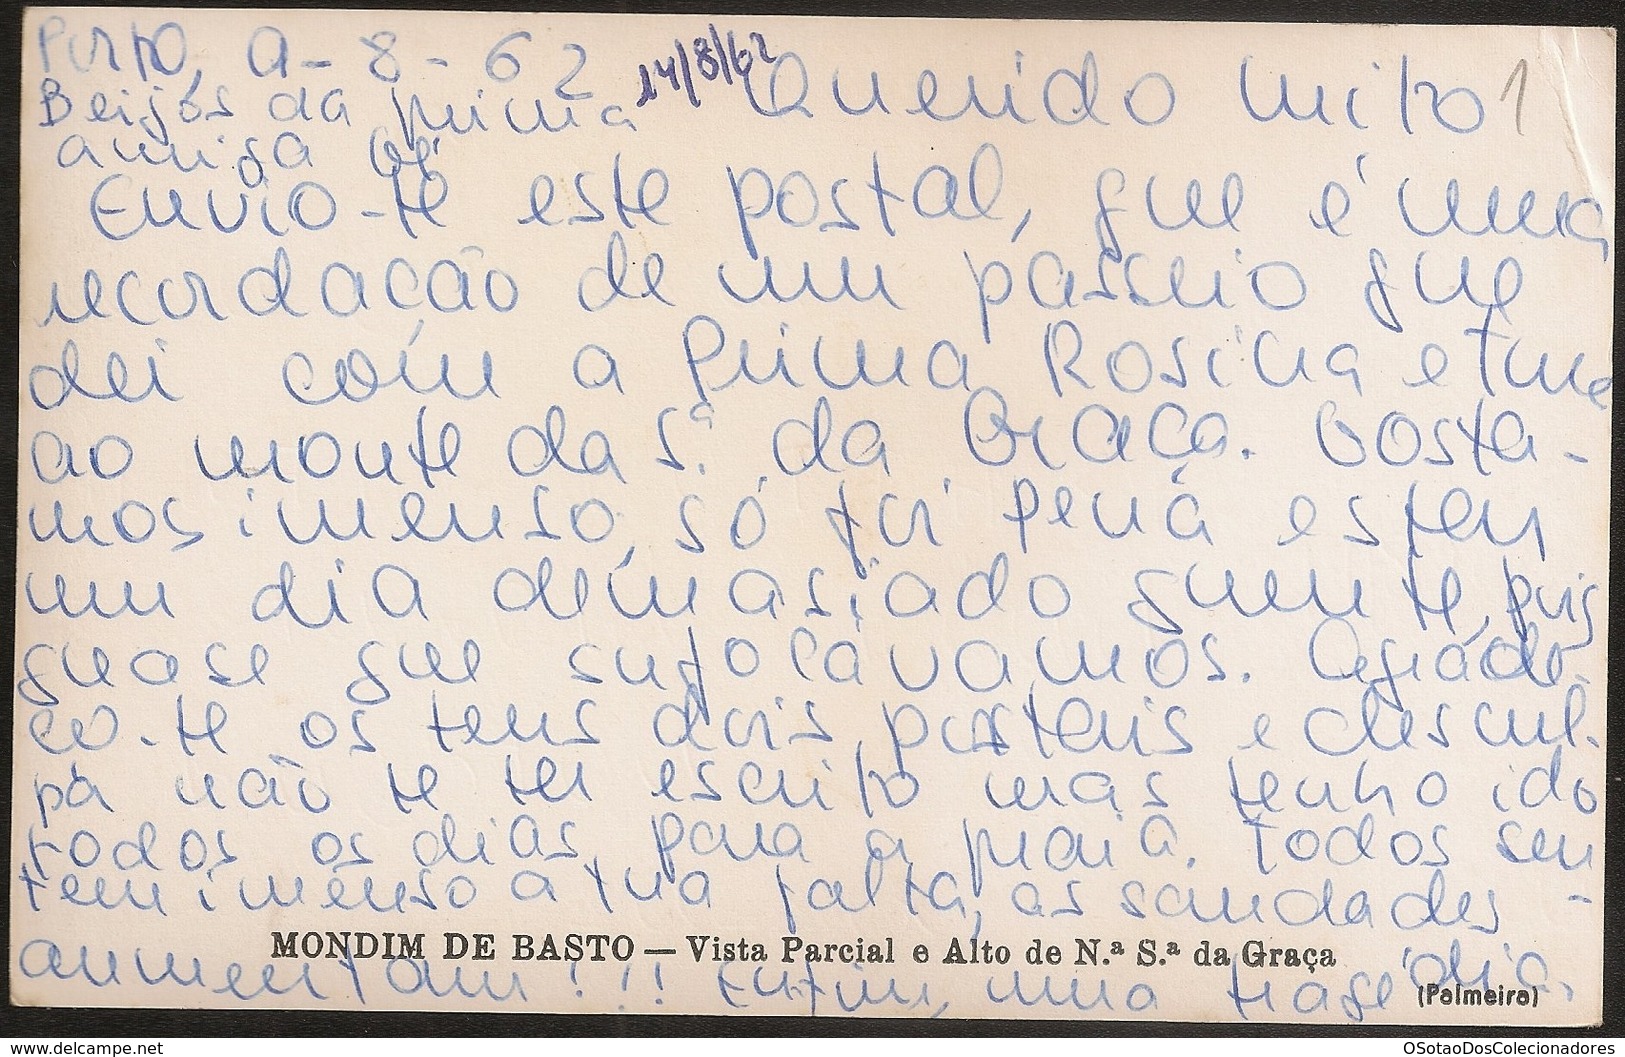 Porto, 9-8-62
14/8/62
Querido miko
1
Beijos da prima
amiga
Envio-te este postal, que é uma
recordação de um passeio que
dei com a Prima Rosina e
ao monte da S.ª da Graça. Gosta-
mos imenso, só foi pena estar
um dia demasiado quente, pois
quase que sufocávamos. Agrade-
ço-te os teus dois postais e descul-
pa não te ter escrito mas tenho ido
todos os dias para a praia. Todos sen-
tem imenso a tua falta, as saudades
aumentam!!! Enfim, uma tragédia.
MONDIM DE BASTO — Vista Parcial e Alto de N.ª S.ª da Graça
(Palmeira)
www.delcampe.net
OSotaoDosColecionadores